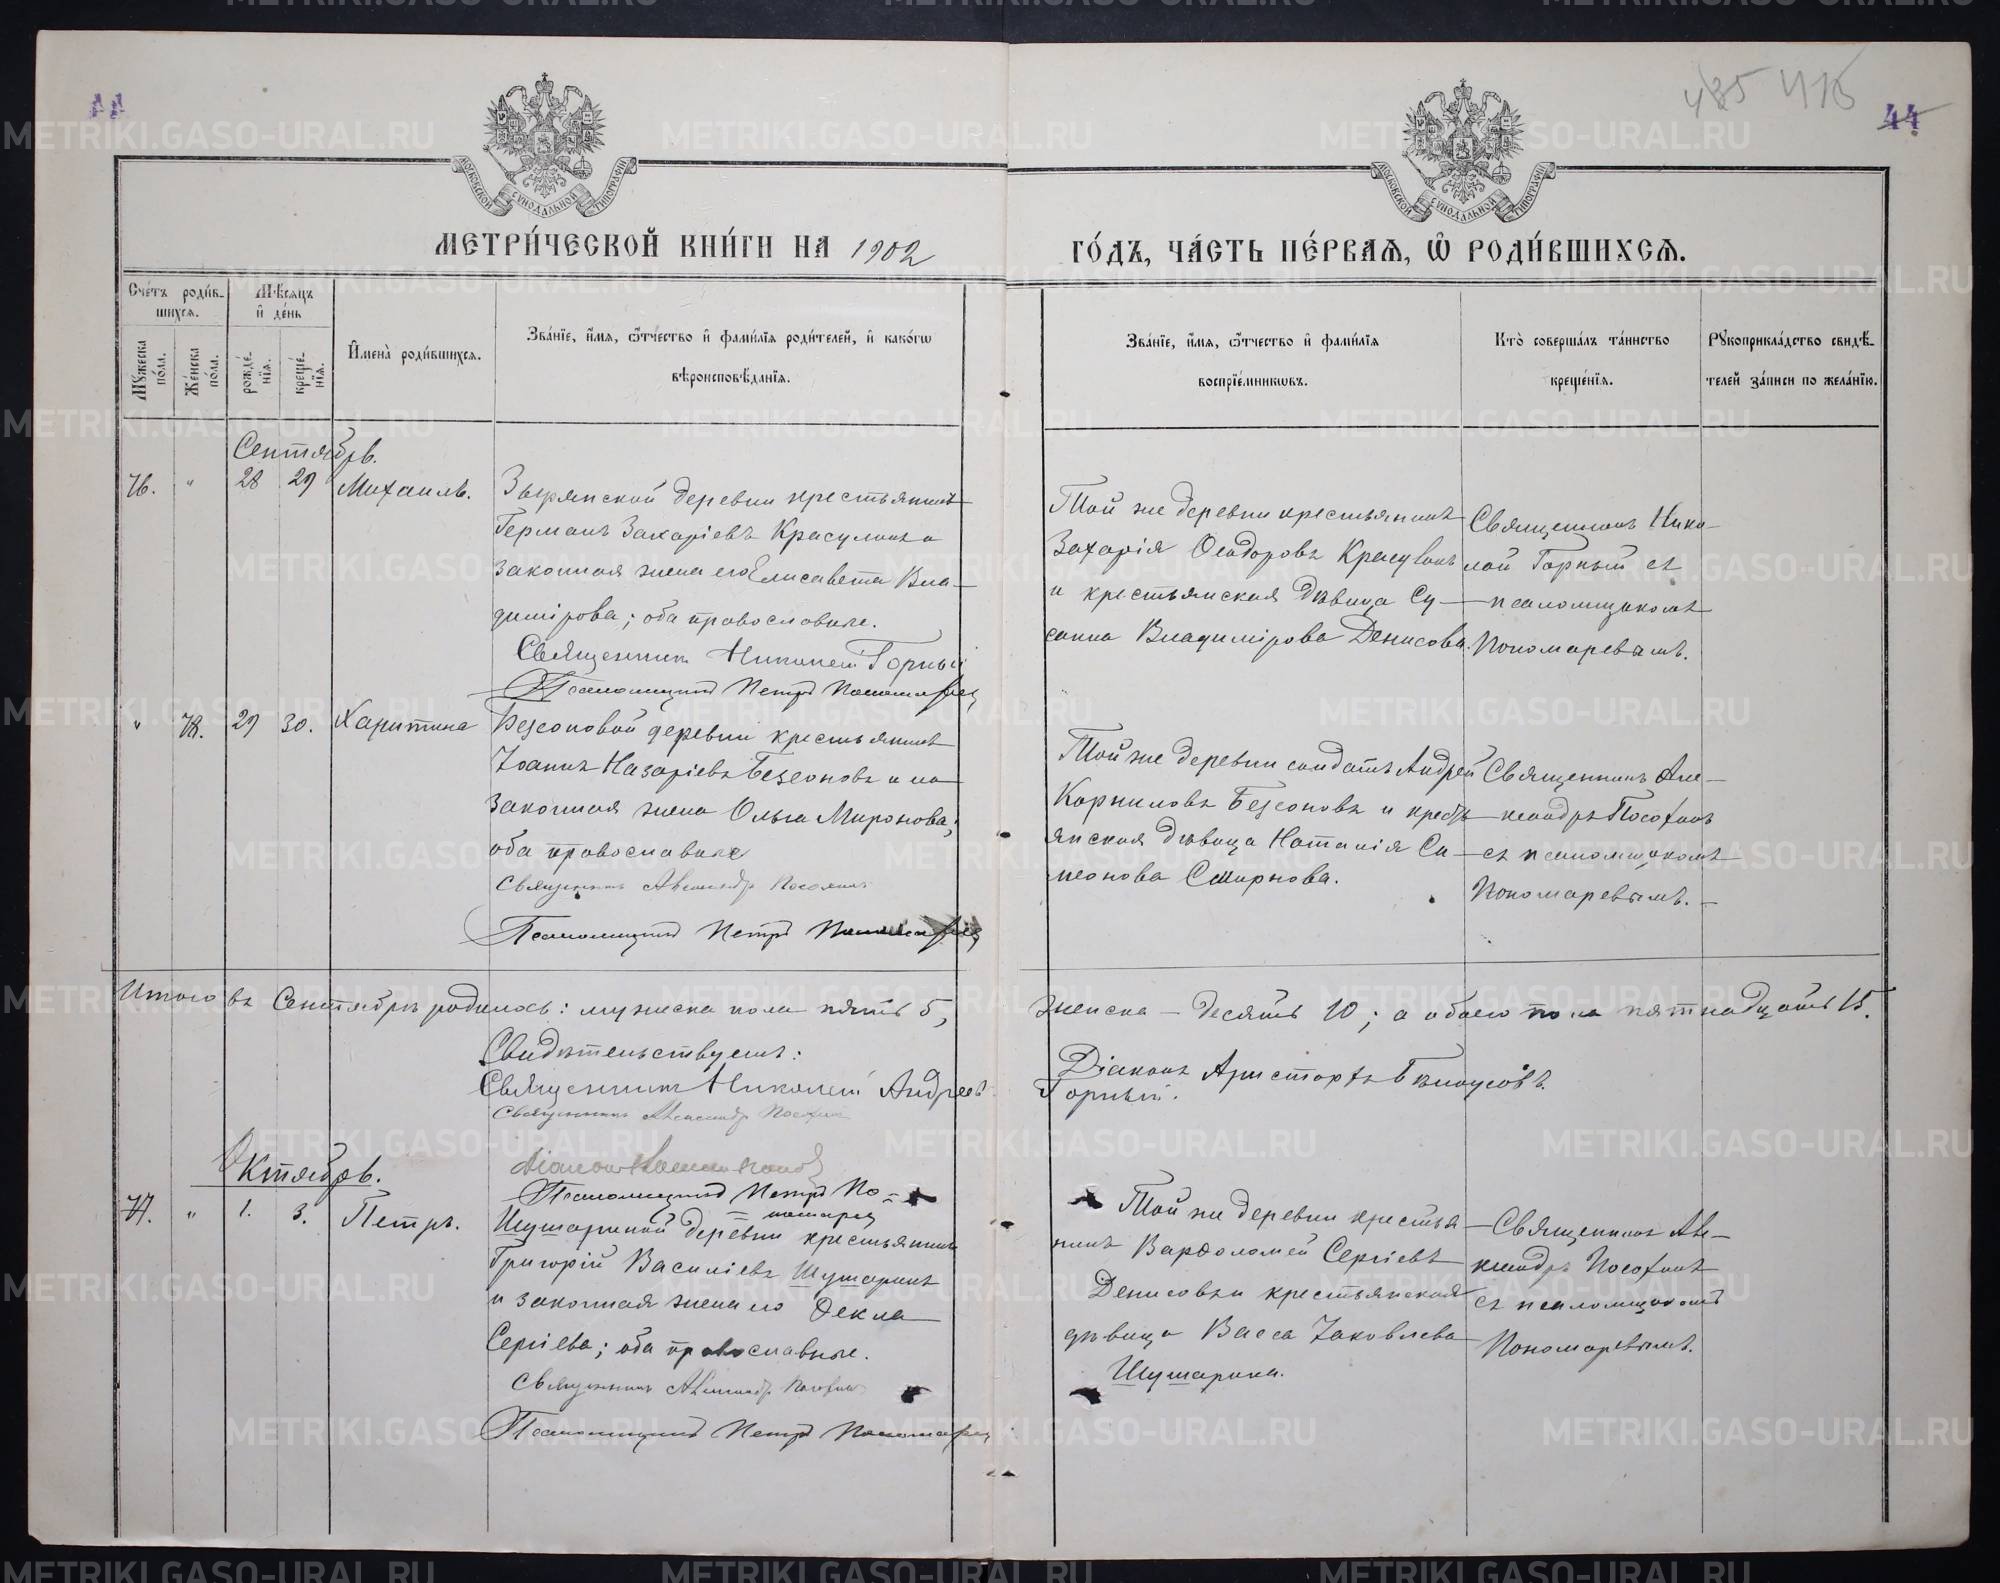 44
485 415
44
МОСКОВСКОЙ СѴНОДАЛЬНОЙ ТИПОГРАФІИ
МОСКОВСКОЙ СѴНОДАЛЬНОЙ ТИПОГРАФІИ
МЕТРИ́ЧЕСКОЙ КНИ́ГИ НА 1902
ГО́ДЪ, ЧА́СТЬ ПЕ́РВАЯ, Ѽ РОДИ́ВШИХСѦ.
Сче́тъ роди́в-
шихсѧ.
Мѣ́сяцъ
и҆ де́нь
Мꙋ́жеска
по́ла.
Же́нска
по́ла.
рожде́-
нїѧ.
креще́-
нїѧ.
И҆мена̀ роди́вшихсѧ.
Зва́нїе, и҆́мѧ, ѻ҆́тчество и҆ фами́лїѧ роди́телей, и҆ како́гѡ
вѣроисповѣ́данїѧ.
Зва́нїе, и҆́мѧ, ѻ҆́тчество и҆ фами́лїѧ
воспрїе́мникѡвъ.
Кто̀ соверша́лъ та́инство
креще́нїѧ.
Рꙋкоприкла́дство свидѣ́-
телей за́писи по жела́нїю.
Сентябрь.
76. " 28 29 Михаилъ.
Зырянской деревни крестьянинъ
Германъ Захаріевъ Красулинъ и
законная жена его Елисавета Вла-
димірова; оба православные.
Священникъ Николай Горный
Псаломщикъ Петръ Пономарев
Той же деревни крестьянинъ
Захарія Ѳеодоровъ Красулинъ
и крестьянская дѣвица Су-
санна Владимірова Денисова.
Священникъ Нико-
лай Горный съ
псаломщикомъ
Пономаревымъ.
" 78. 29 30. Харитина
Безсоновой деревни крестьянинъ
Іоаннъ Назаріевъ Безсоновъ и
законная жена Ольга Миронова;
оба православные
Священникъ Александръ Посохинъ
Псаломщикъ Петръ Пономарев
Той же деревни солдатъ Андрей
Корниловъ Безсоновъ и кресть-
янская дѣвица Наталія Си-
меонова Смирнова.
Священникъ Але-
ксандръ Посохинъ
съ псаломщикомъ
Пономаревымъ.
Итого въ Сентябрѣ родилось: мужеска пола пять 5,
женска – десять 10; а обоего пола пятнадцать 15.
Свидѣтельствуемъ:
Священникъ Николай Андреевъ
Горный.
Священникъ Александръ Посохинъ
Діаконъ Аристархъ Бѣлоусовъ.
Діаконъ
Псаломщикъ Петръ По-
номарев
Октябрь.
77. " 1. 3. Петръ.
Шушариной деревни крестьянинъ
Григорій Василіевъ Шушаринъ
и законная жена его Ѳекла
Сергіева; оба православные.
Священникъ Александръ Посохинъ
Псаломщикъ Петръ Пономарев
Той же деревни крестья-
нинъ Варѳоломей Сергіевъ
Денисовъ и крестьянская
дѣвица Васса Іаковлева
Шушарина.
Священникъ Але-
ксандръ Посохинъ
съ псаломщикомъ
Пономаревымъ.
METRIKI.GASO-URAL.RU